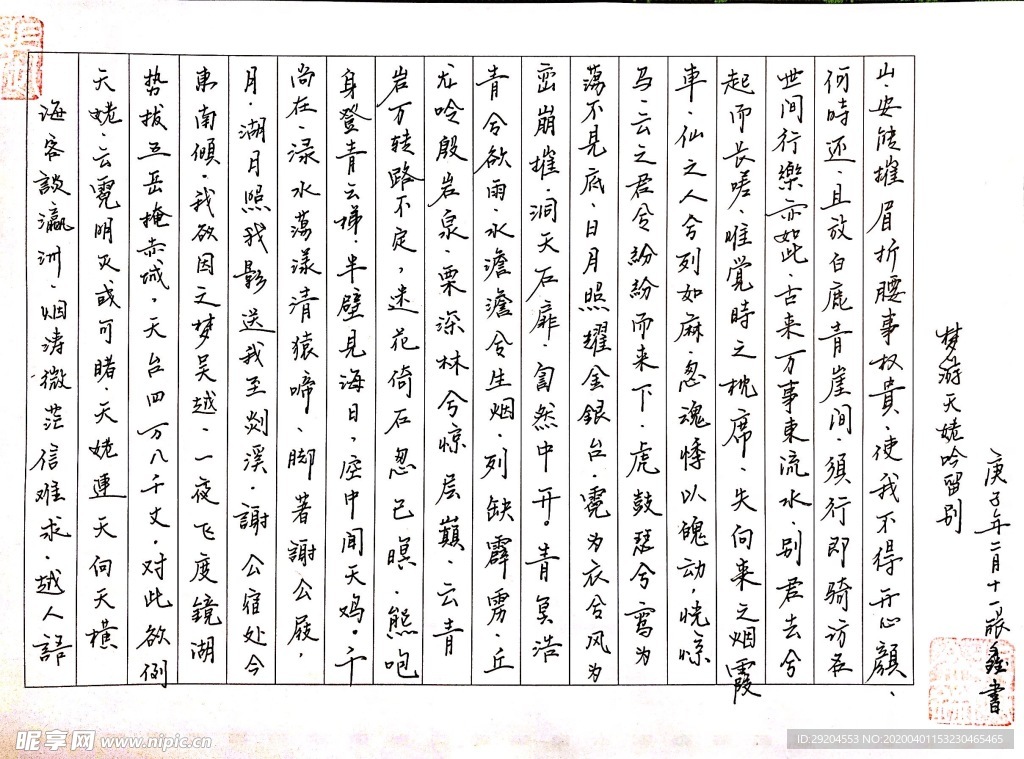 海客談瀛洲、烟涛微茫信难求、越人語
天姥、云霓明灭或可睹、天姥連天向天橫
势拔五岳掩赤城、天台四万八千丈、对此欲倒
東南傾、我欲因之梦吴越、一夜飞度鏡湖
月、湖月照我影送我至剡溪、謝公宿处今
尚在、渌水荡漾清猿啼、脚著謝公屐，
身登青云梯、半壁見海日，空中闻天鸡。千
岩万转路不定，迷花倚石忽已暝、熊咆
龙吟殷岩泉、栗深林兮惊层巅、云青
青兮欲雨、水澹澹兮生烟、列缺霹雳、丘
峦崩摧、洞天石扉、訇然中开。青冥浩
荡不見底、日月照耀金銀台、霓为衣兮风为
马、云之君兮紛紛而来下、虎鼓瑟兮鸾为
車、仙之人兮列如麻、忽魂悸以魄动，恍惊
起而长嗟、唯覚時之枕席、失向来之烟霞
世间行樂亦如此、古来万事東流水、别君去兮
何時还、且放白鹿青崖间、須行即骑访名
山、安能摧眉折腰事权貴、使我不得开心顏、
梦游天姥吟留别
庚子年二月十一張鑫書
昵享网 www.nipic.cn
ID:29204553 NO:20200401153230465465